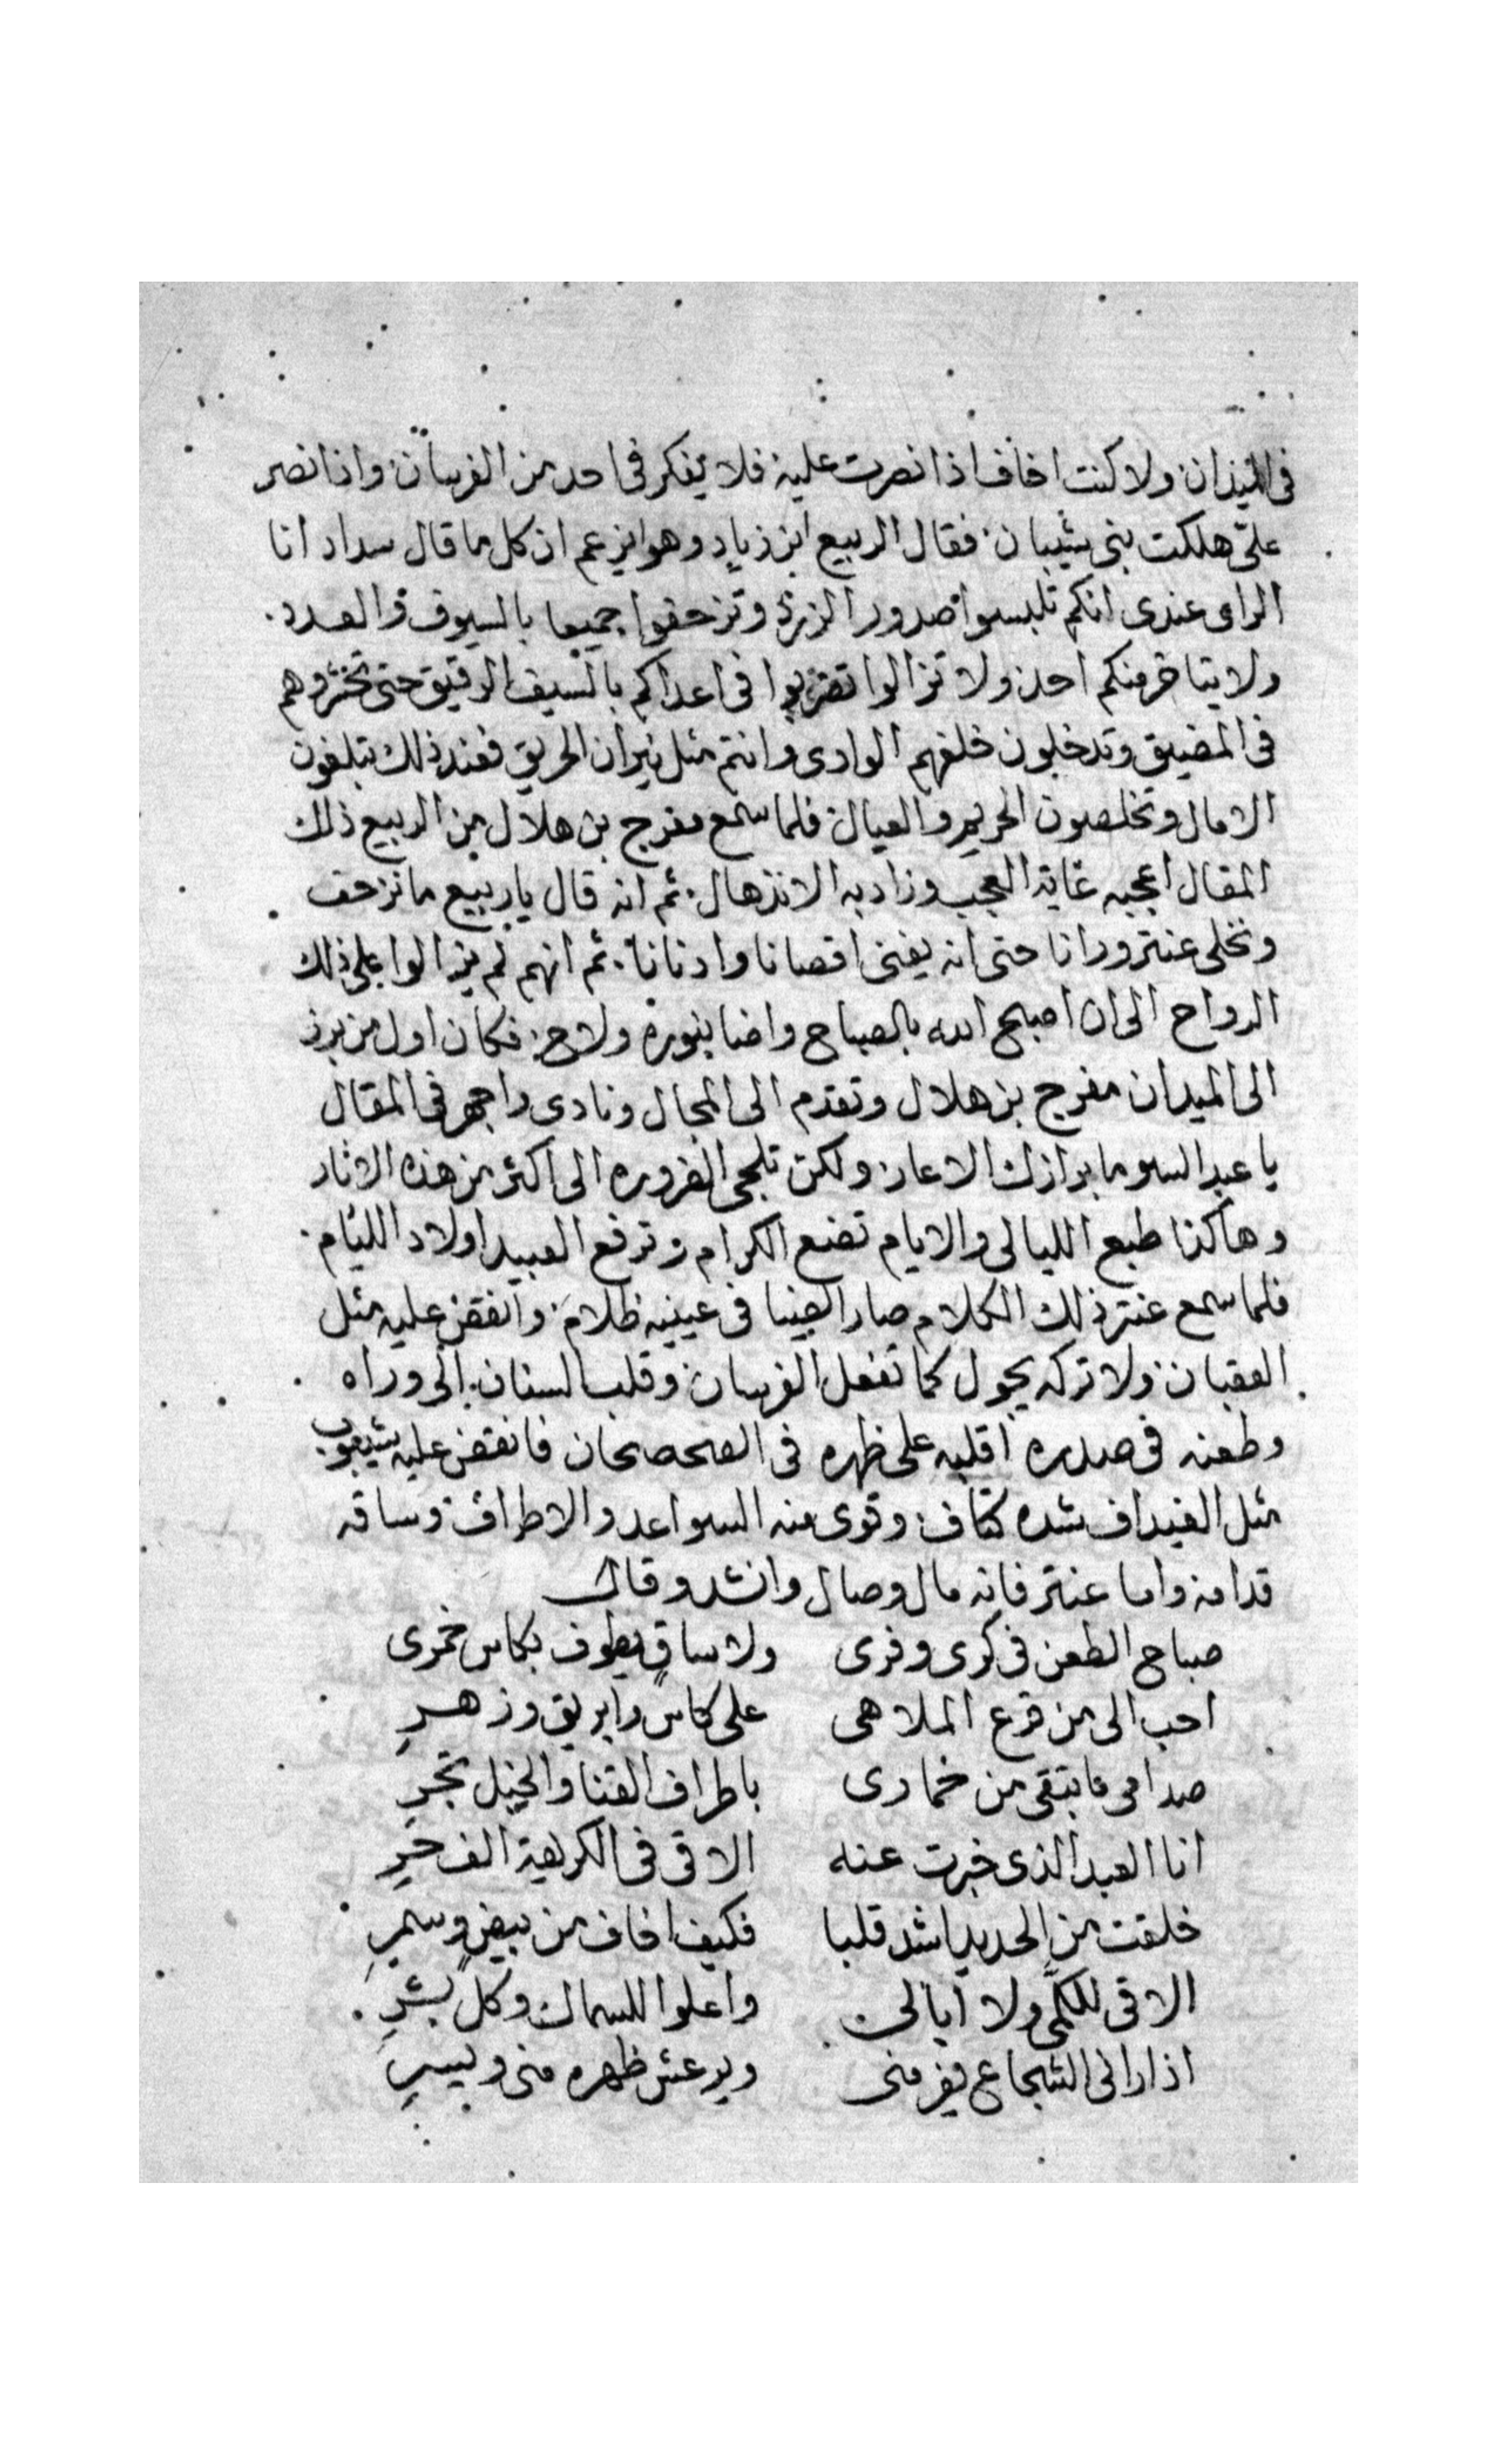 في الميزان ولا كنت اخاف اذا نصرت عليه فلا يفكر في احد من الفرسان واذا نصر
علىّ هلكت بني شيبان فقال الربيع ابن زياد وهو يزعم ان كل ما قال سداد انا
الراى عندى انكم تلبسوا صدور الزرد وتزحفوا جميعا بالسيوف والعدد
ولا يتاخر منكم احد ولا تزالوا تضربوا في اعداكم بالسيف الرقيق حتى تحشروهم
في المضيق وتدخلون خلفهم الوادى وانتم مثل نيران الحريق فعند ذلك تبلغون
الامال وتخلصون الحريم والعيال فلما سمع مفرج بن هلال من الربيع ذلك
المقال اعجبه غاية العجب وزاد به الانذهال ثم انه قال يا ربيع ما نزحف
ونخلى عنتر ورانا حتى انه يفنى اقصانا وادنانا ثم انهم لم يزالوا على ذلك
الرواح الى ان اصبح الله بالصباح واضا بنوره ولاح فكان اول من برز
الى الميدان مفرج بن هلال وتقدم الى المجال ونادى واجهر في المقال
يا عبد السو ما برازك الا عار ولكن تلجى الضروره الى اكثر من هذه الاثار
وهاكذا طبع الليالى والايام تضع الكرام وترفع العبيد اولاد الليام
فلما سمع عنتر ذلك الكلام صار الضيا في عينيه ظلام وانقض عليه مثل
العقبان ولا تركه يجول كما تفعل الفرسان وقلب السنان الى وراه
وطعنه في صدره اقلبه على ظهره في الصحصحان فانقض عليه شيبوب
مثل الغيداف شده كتاف وقوى منه السواعد والاطراف وساقه
قدامه واما عنتر فانه مال وصال وانشد وقال
صباح الطعن في كرى وفرى ولا ساقٍ يطوف بكاس خمرى
احب الى من قرع الملاهى على كاسٍ وابريق وزهرِ
صدامى ما بتقى من خمارى باطراف القنا والخيل تجرِ
انا العبد الذى خبرت عنه الاقى في الكريهة الف حرِ
خلقت من الحديد اشد قلبا فكيف اخاف من بيض وسمرِ
الاقى للكمى ولا ابالى واعلوا للسماك وكل بشرِ
اذا رانى الشجاع يفر منى ويرعش ظهره منى ويسرِ